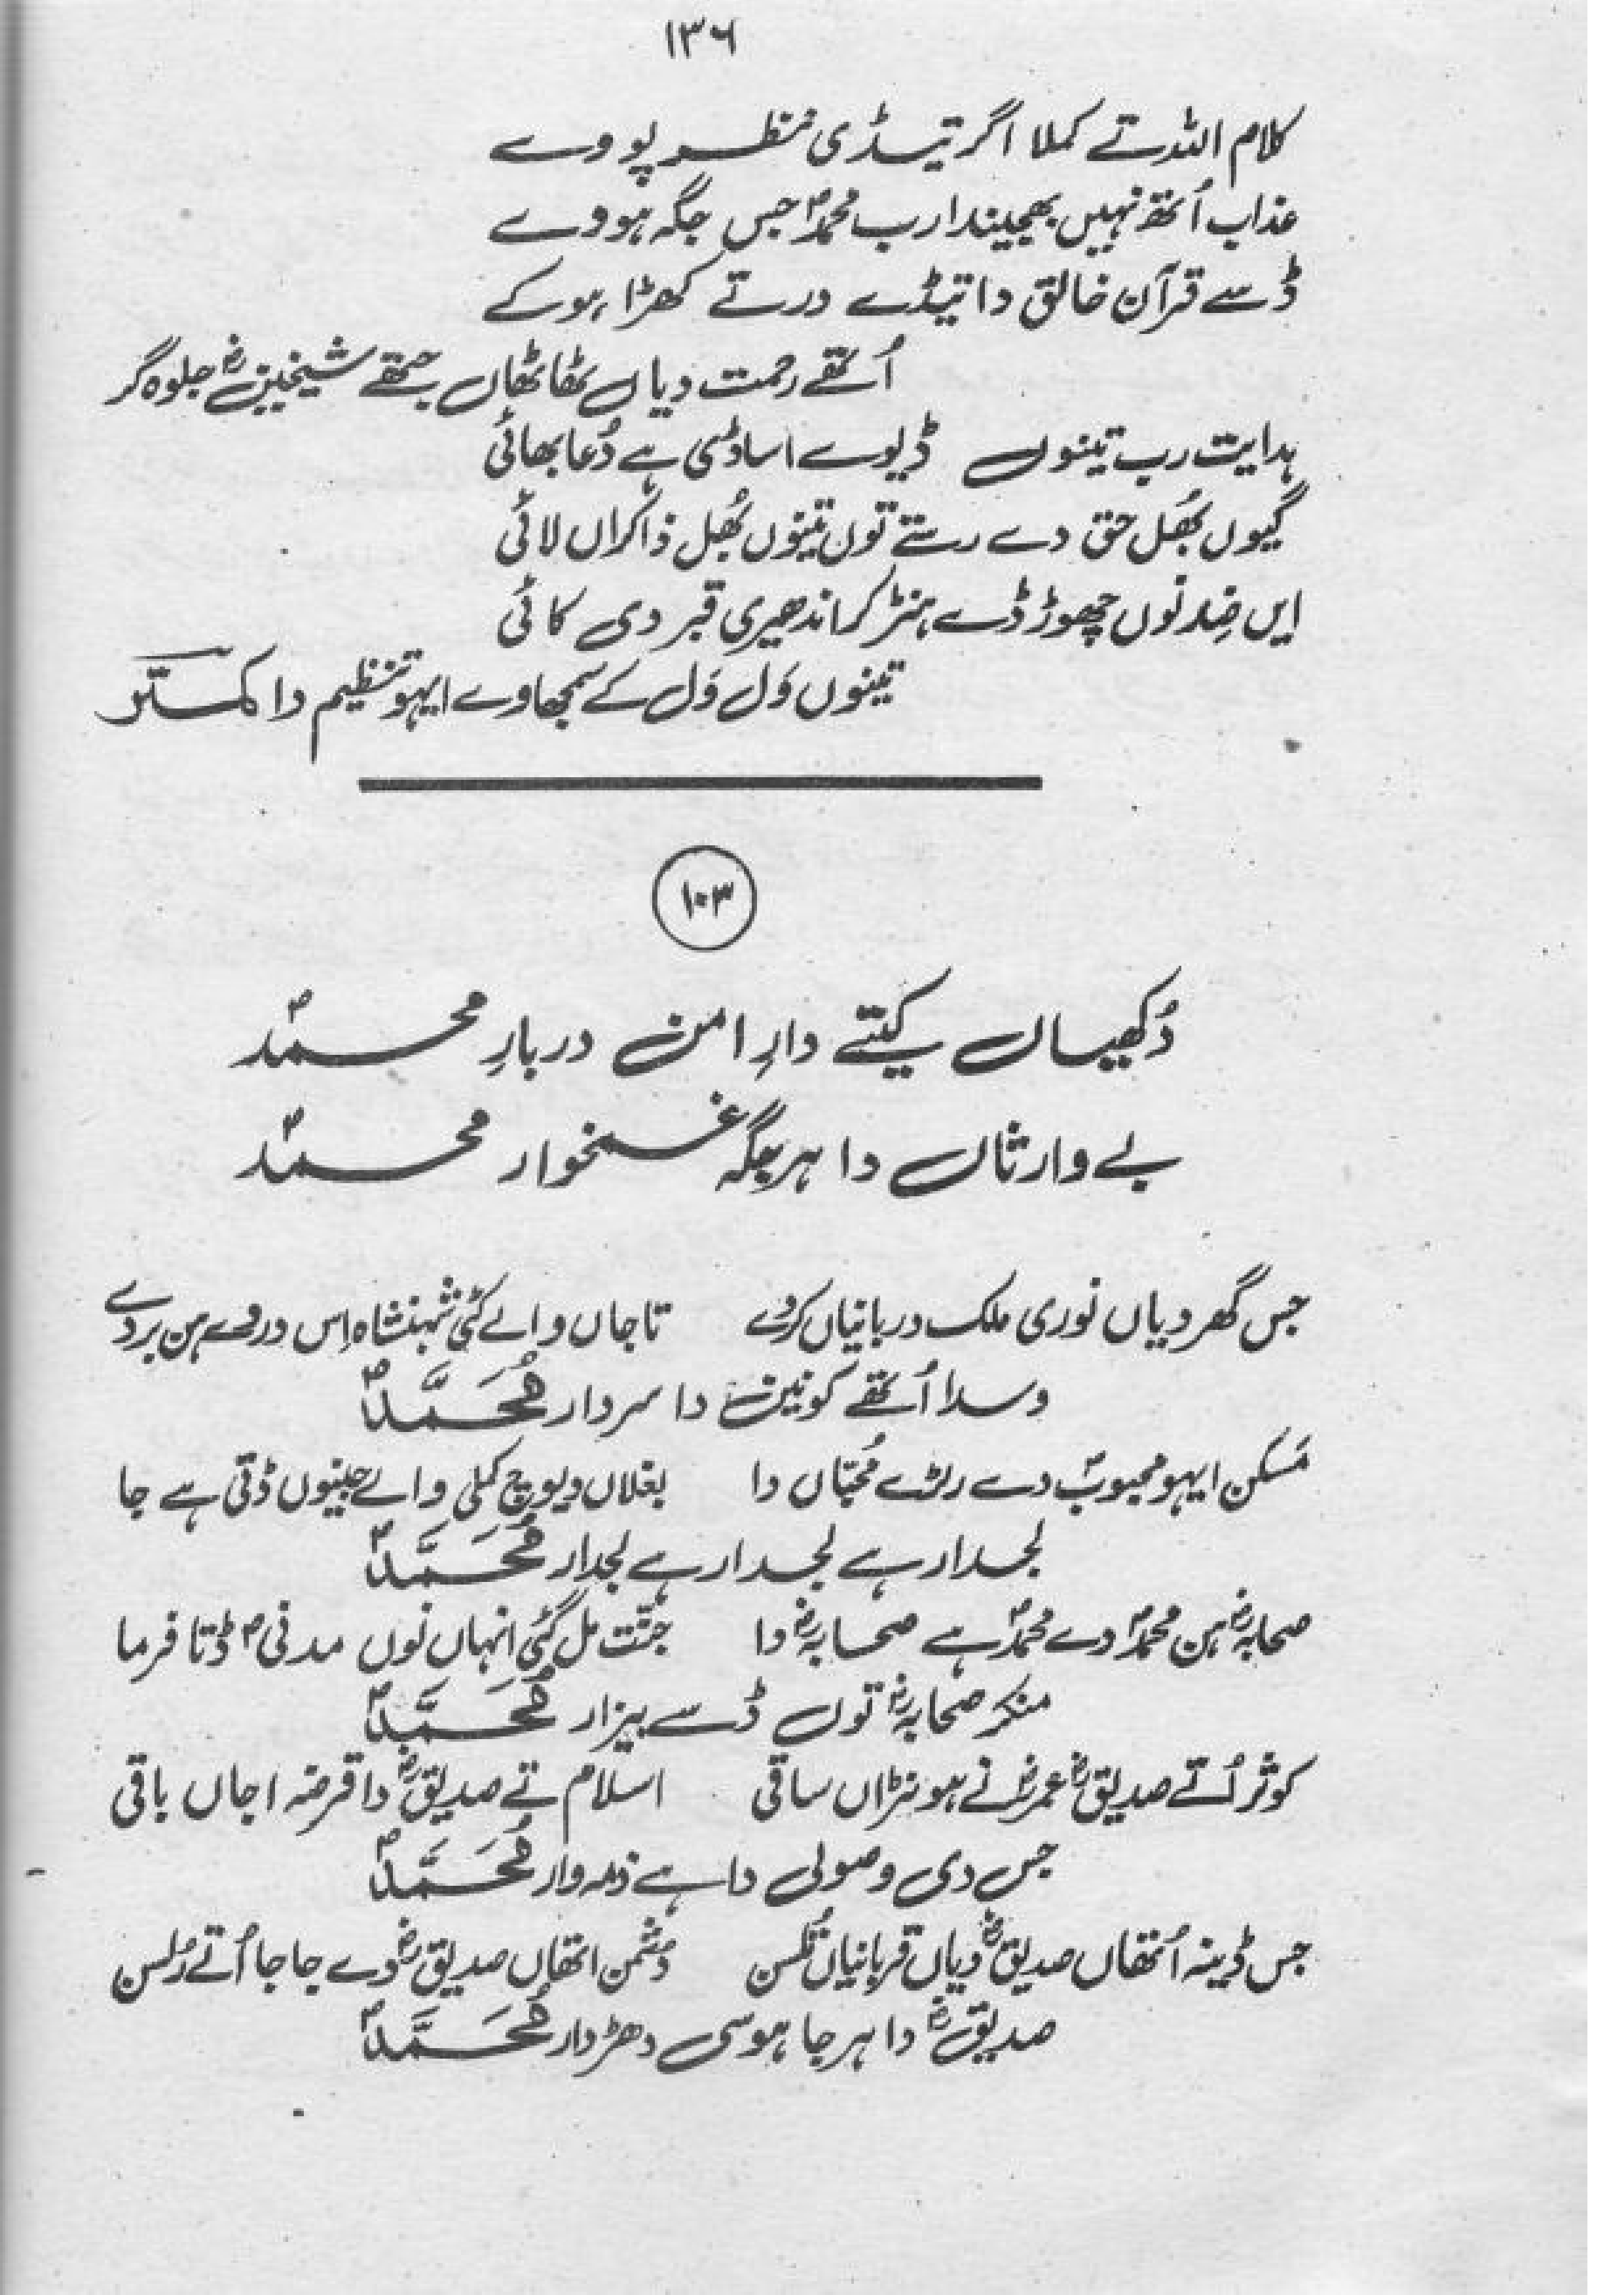 ۱۳۶
کلام اللہ تے کملا اگر تیڈی نظر پووے
عذاب اُتھ نہیں بھجیندا رب محمدؐ جس جگہ ہووے
ڈسے قرآن خالق دا تیڈے درتے کھڑا ہوکے
اُتھے رحمت دیاں ٹھاٹھاں جتھے شیخینؓ جلوہ گر
ہدایت رب تینوں ڈیوے اساڈی ہے دُعا بھائی
گیوں بُھل حق دے رستے توں تینوں بُھل ذاکراں لائی
ایں ضِد نوں چھوڑ ڈے ہنڑ کر اندھیری قبر دی کائی
تینوں وَل وَل کے سمجھاوے ایہو تنظیم دا کمتر
۱۰۳
دُکھیاں کیتے دارِ امن دربارِ محمدؐ
بے وارثاں دا ہر جگہ غمخوار محمدؐ
جس گھر دیاں نوری ملک دربانیاں کردے تاجاں والے کئی شہنشاہ اِس در دے ہن بردے
وسدا اُتھے کونین دا سردار مُحَمَّدؐ
مَسکن ایہو محبوبؐ دے رلڑے مُحبّاں دا بغلاں ویوچ کملی والے جینوں ڈتی ہے جا
لجدار ہے لجدار ہے لجدار مُحَمَّدؐ
صحابہؓ ہن محمدؐ دے محمدؐ ہے صحابہؓ دا جنّت مل گئی اِنہاں نوں مدنیؐ ڈتا فرما
منکر صحابہؓ توں ڈسے بیزار مُحَمَّدؐ
کوثر اُتے صدیقؓ عمرؓ نے ہونڑاں ساقی اسلام تے صدیقؓ دا قرضہ اجاں باقی
جس دی وصولی دا ہے ذمہ وار مُحَمَّدؐ
جس ڈینہ اُتھاں صدیقؓ دیاں قربانیاں تُلسن دشمن اتھاں صدیقؓ دے جا جا اُتے رُلسن
صدیقؓ دا ہر جا ہوسی دھڑدار مُحَمَّدؐ